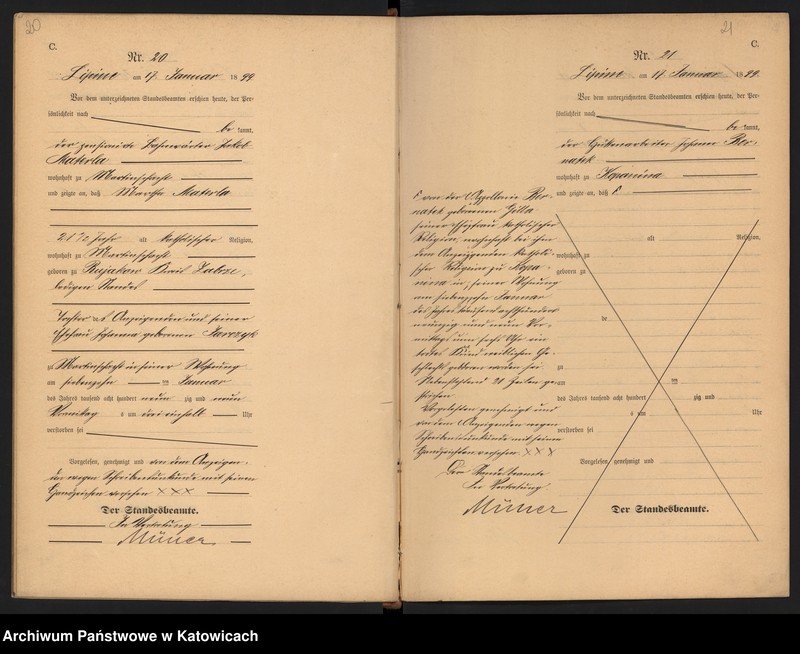 20
C.
Nr. 20
Lipine am 17. Januar 1899
Vor dem unterzeichneten Standesbeamten erschien heute, der Per-
sönlichkeit nach
be kannt,
der Jakob
Materla
wohnhaft zu Martinschacht
und zeigte an, daß Martha Materla
alt katholischer Religion,
wohnhaft zu Martinschacht
geboren zu Kreis Zabrze,
ledigen Standes
Tochter des Anzeigenden und seiner
Ehefrau Johanna geborenen
zu Martinschacht in seiner Wohnung
am siebenzehn ten Januar
des Jahres tausend acht hundert neun zig und neun
Vormittag s um drei einhalb Uhr
verstorben sei
Vorgelesen, genehmigt und von dem Anzeigen-
den wegen Schreibensunkunde mit seinem
Handzeichen versehen XXX
Der Standesbeamte.
In Vertretung
Müner
21
C.
Nr. 21
Lipine am 17. Januar 1899.
Vor dem unterzeichneten Standesbeamten erschien heute, der Per-
sönlichkeit nach
be kannt,
der Hüttenarbeiter Johann Ber-
natek
wohnhaft zu Kopanina
und zeigte an, daß
von der Ber-
natek geborenen Gilla
seiner Ehefrau katholischer
Religion, wohnhaft bei ihm
dem Anzeigenden katholi-
scher Religion zu Kopa-
nina in seiner Wohnung
am siebenzehnten Januar
des Jahres tausend achthundert
neunzig und neun Vor-
mittags um sechs Uhr ein
todtes Kind weiblichen Ge-
schlecht geboren worden sei.
Nebenstehend 21 Zeilen ge-
strichen.
Vorgelesen genehmigt und
von dem Anzeigenden wegen
Schreibensunkunde mit seinem
Handzeichen versehen XXX
Der Standesbeamte
In Vertretung.
Müner
alt Religion,
wohnhaft zu
geboren zu
de
zu
am ten
des Jahres tausend acht hundert zig und
s um Uhr
verstorben sei
Vorgelesen, genehmigt und
Der Standesbeamte.
Archiwum Państwowe w Katowicach